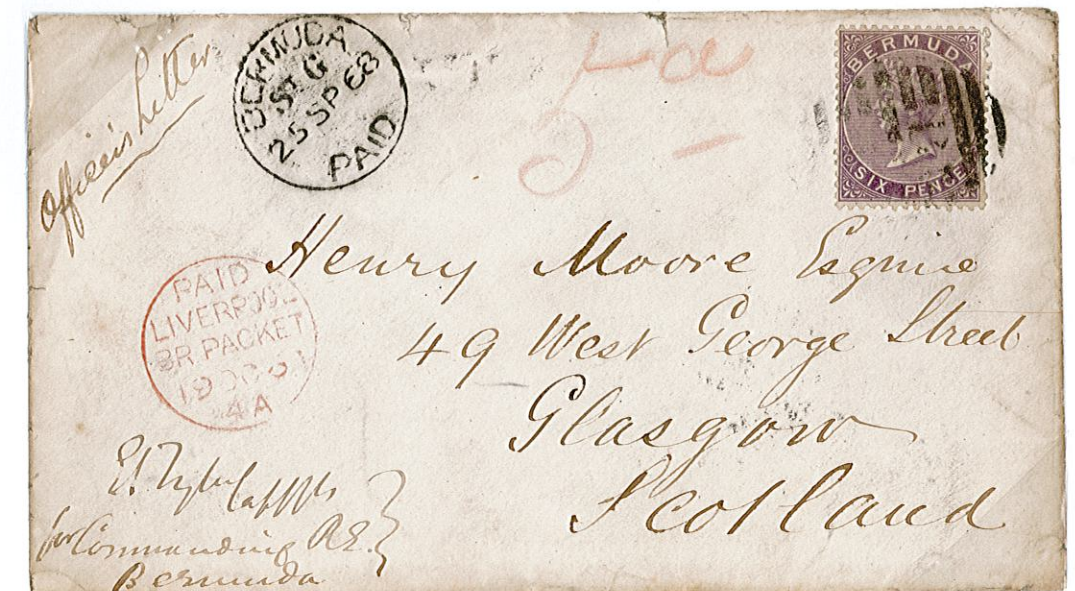 Officer's Letter
BERMUDA
ST G
25 SP 68
PAID
BERMUDA
SIX PENCE
Henry Moore Esquire
49 West George Street
Glasgow
Scotland
PAID
LIVERPOOL
BR. PACKET
4 A
Commanding R.E.
Bermuda